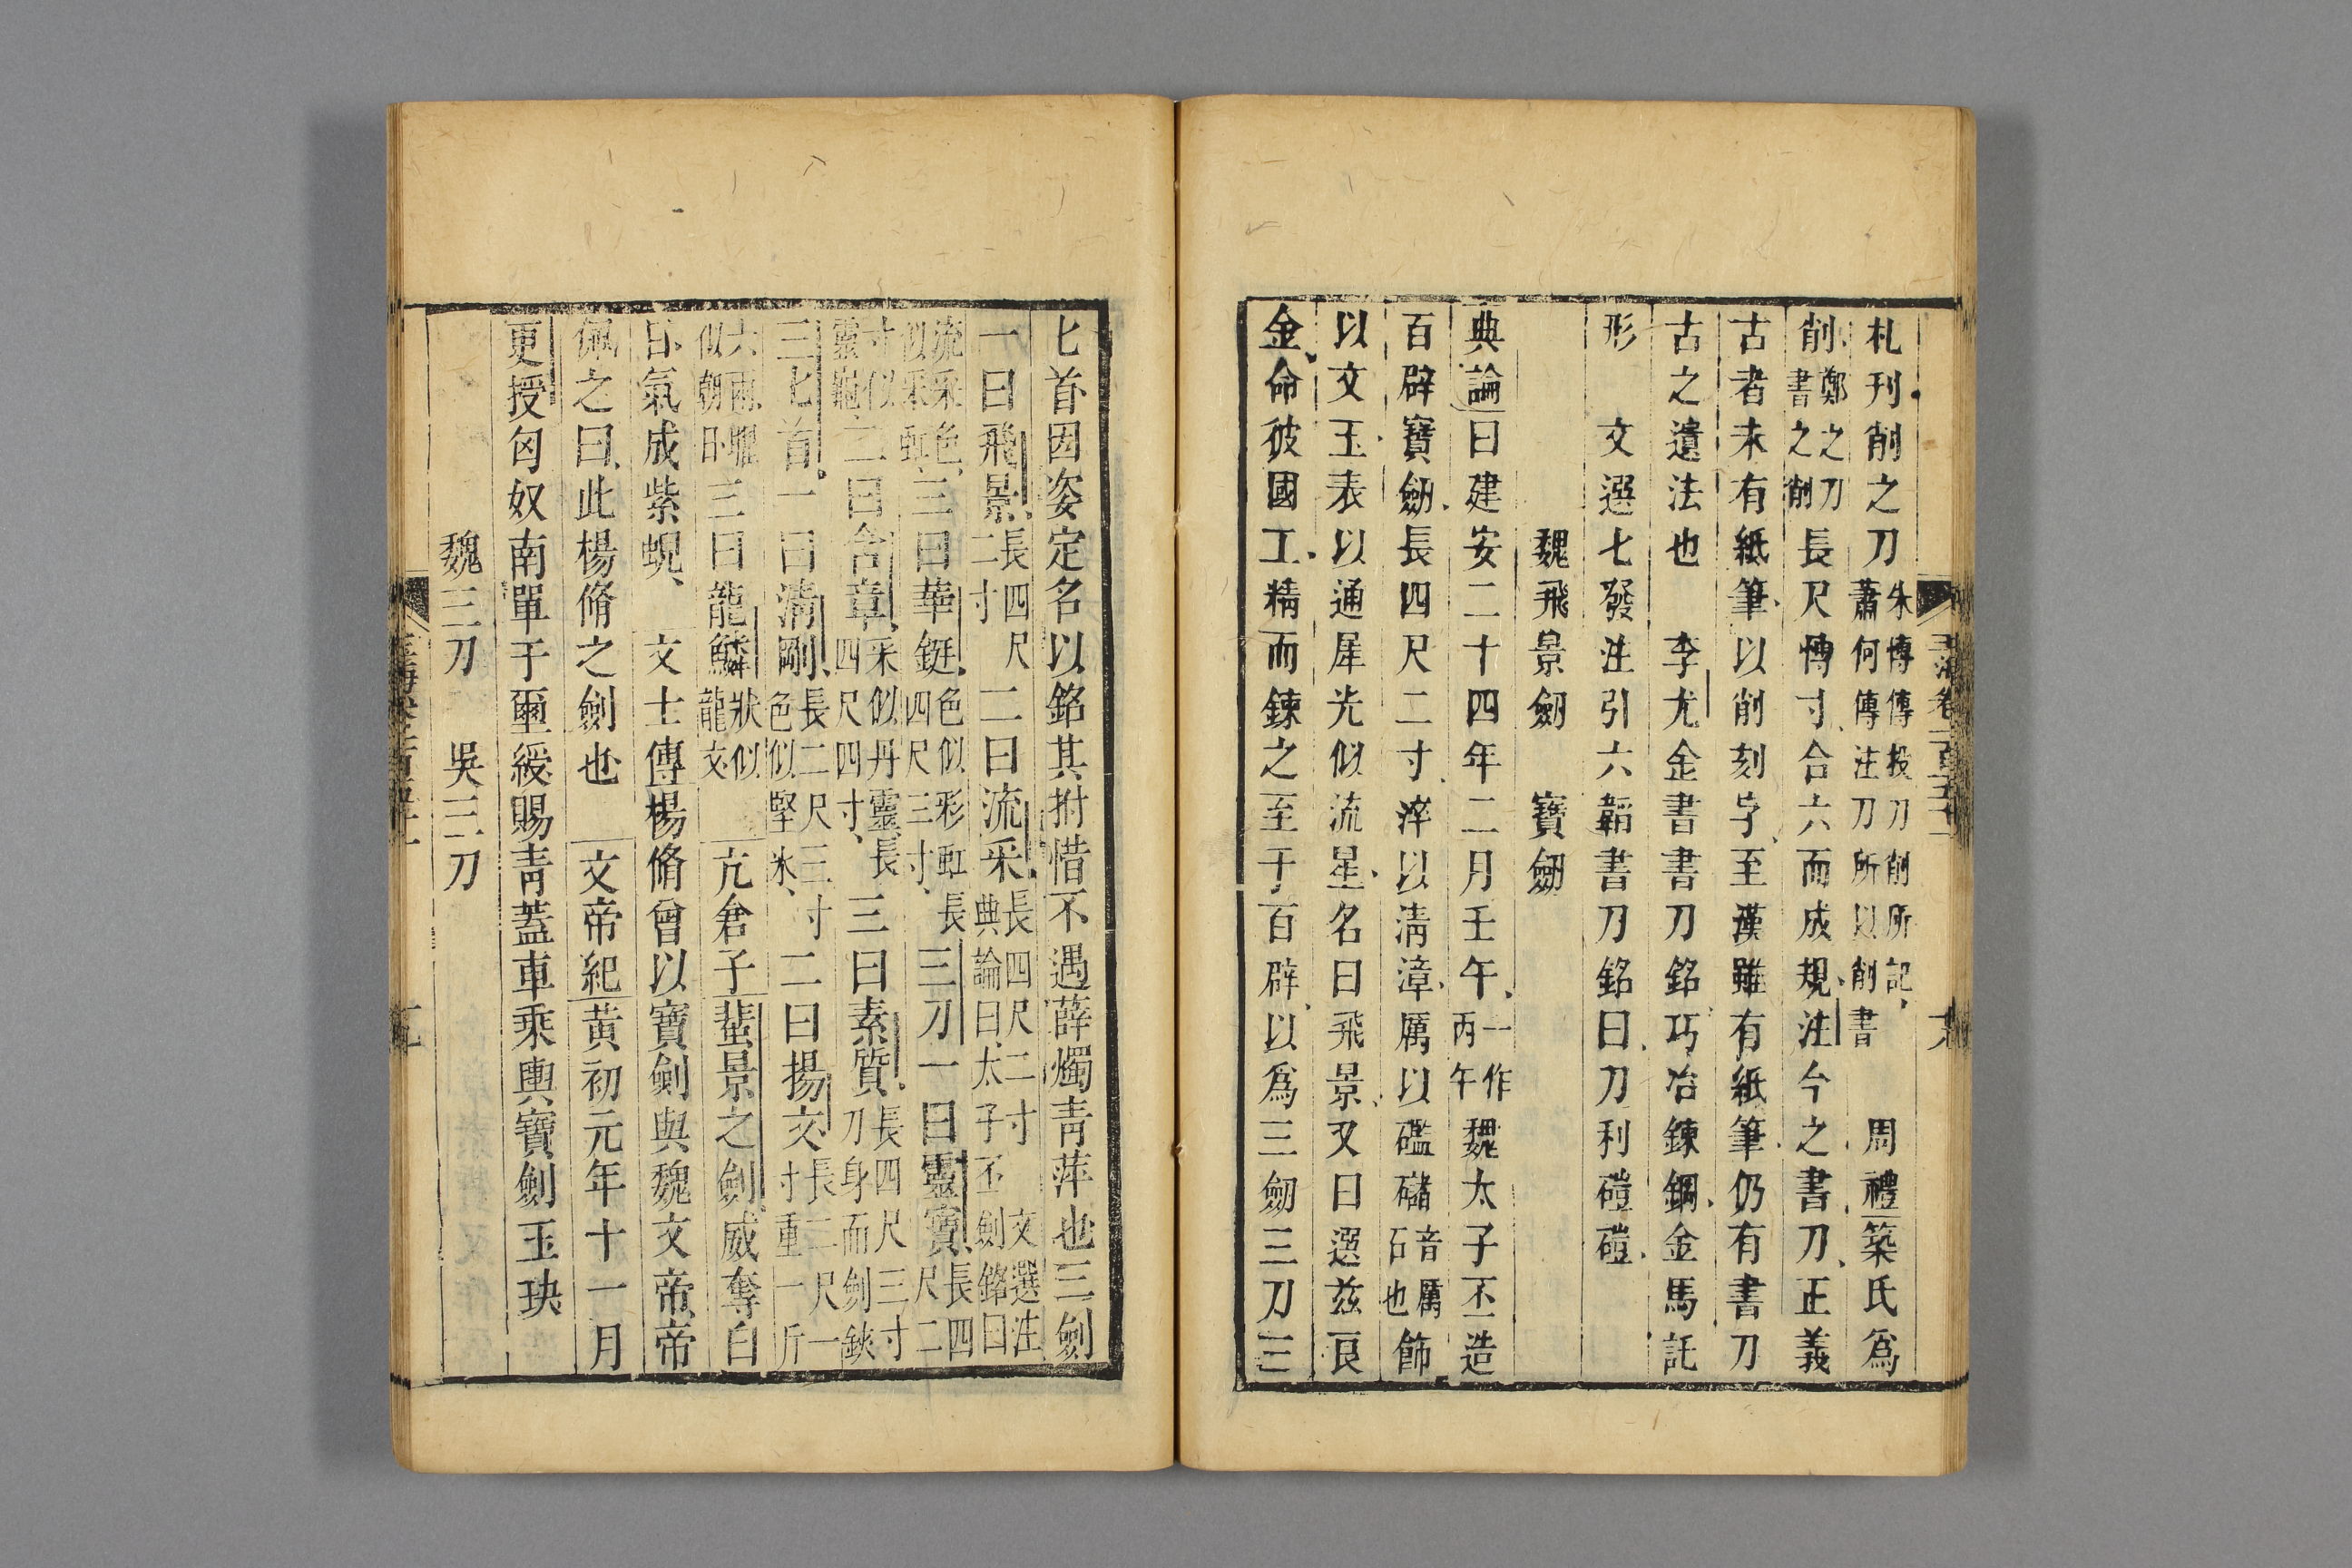 玉海卷一百五十一
札刊削之刀朱博傳投刀削所記蕭何傳注刀所以削書 周禮築氏爲
削鄭之刀書之削長尺博寸合六而成規注今之書刀正義
古者未有紙筆以削刻字至漢雖有紙筆仍有書刀
古之遺法也 李尤金書書刀銘巧冶鍊鋼金馬託
形 文選七發注引六韜書刀銘曰刀利磑磑
魏飛景劒 寶劒
典論曰建安二十四年二月壬午一作丙午魏太子丕造
百辟寶劒長四尺二寸淬以清漳厲以礛䃴音厲石也飾
以文玉表以通犀光似流星名曰飛景又曰選茲良
金命彼國工精而鍊之至于百辟以爲三劒三刀三
匕首因姿定名以銘其拊惜不遇薛燭青萍也三劍
一曰飛景長四尺二寸二曰流采長四尺二寸 文選注典論曰太子丕劍銘曰
流采色似采虹三曰華鋌色似彩虹長四尺三寸三刀一曰靈寶長四尺二
寸似靈龜二曰含章采似丹靈長四尺四寸三曰素質長四尺三寸刀身而劍鋏
三匕首一曰清剛長二尺三寸色似堅氷二曰揚文長二尺一寸重一斤
六兩耀似朝日三曰龍鱗狀似龍文 亢倉子蜚景之劍威奪白
日氣成紫蜺 文士傳楊脩曾以寶劍與魏文帝帝
佩之曰此楊脩之劍也 文帝紀黃初元年十一月
更授匈奴南單于璽綬賜青蓋車乘輿寶劍玉玦
魏三刀 吳三刀